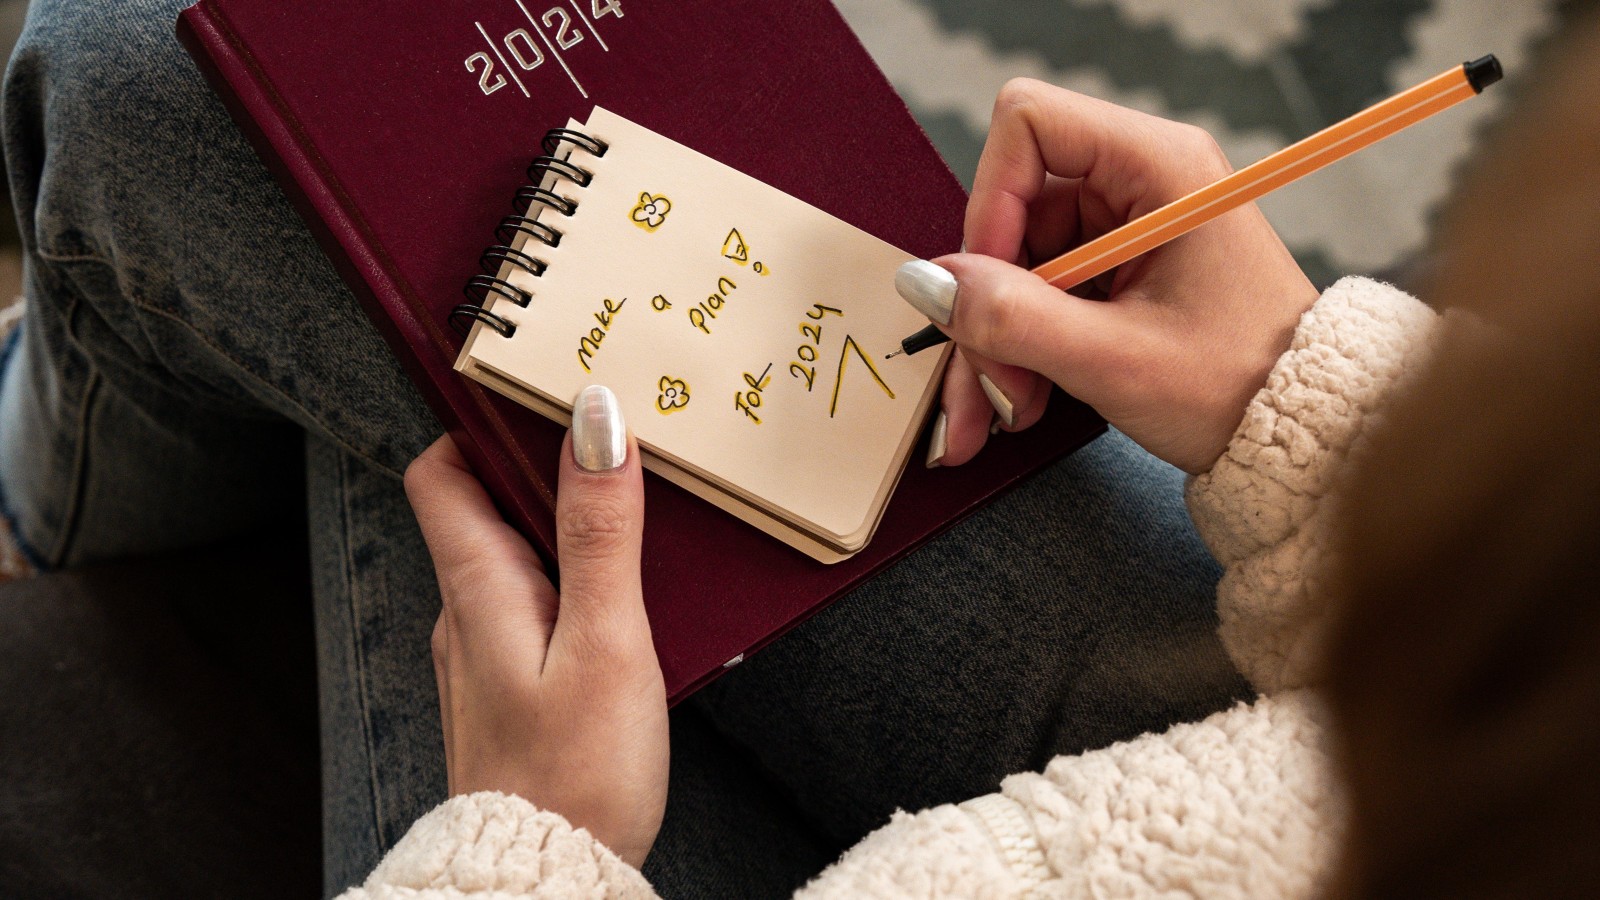 2024
Make a Plan!
For 2024